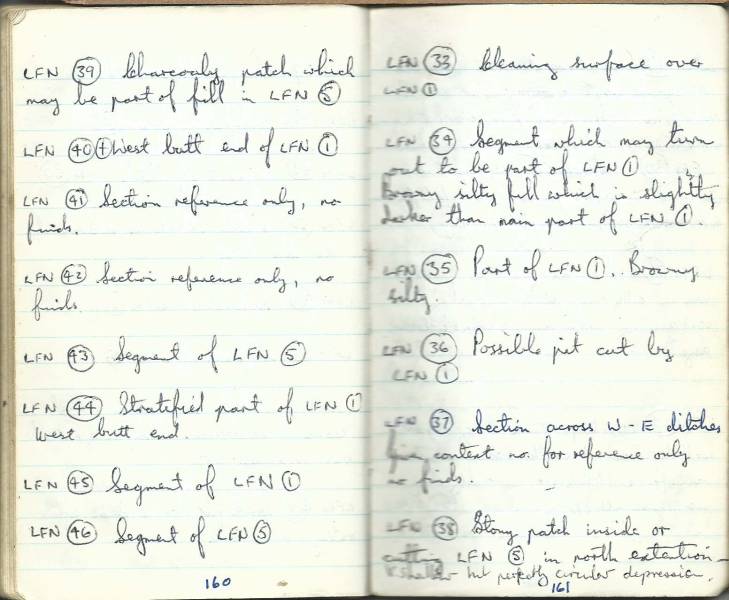 LFN 39 Charcoaly patch which
may be part of fill in LFN 5
LFN 40 + West butt end of LFN 1
LFN 41 Section reference only, no
finds.
LFN 42 Section reference only, no
finds.
LFN 43 Segment of LFN 5
LFN 44 Stratified part of LFN 1
West butt end.
LFN 45 Segment of LFN 1
LFN 46 Segment of LFN 5
160
LFN 33 Cleaning surface over
LFN 1
LFN 34 Segment which may turn
out to be part of LFN 1
Browny silty fill which is slightly
darker than main part of LFN 1.
LFN 35 Part of LFN 1. Browny
silty.
LFN 36 Possible pit cut by
LFN 1
LFN 37 Section across W-E ditches
given context no. for reference only
no finds.
LFN 38 Stony patch inside or
cutting LFN 5 in north extention -
V. shallow but perfectly circular depression.
161